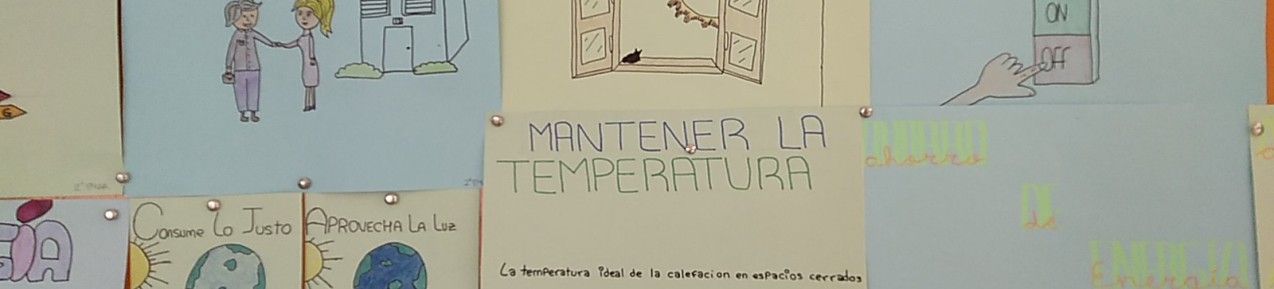 ON
OFF
MANTENER LA
TEMPERATURA
La temperatura ideal de la calefacion en espacios cerrados
Consume lo Justo
APROVECHA LA LUZ
AHORRO
ahorro
DE
de
ENERGIA
Energía
G